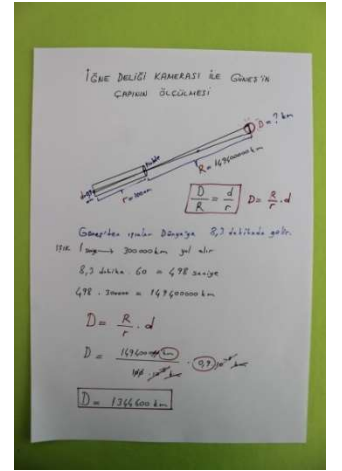 İĞNE DELİĞİ KAMERASI İLE GÜNEŞ'İN
ÇAPININ ÖLÇÜLMESİ
D = ? km
R = 149400000 km
r = 100cm
D/R = d/r D = R/r . d
Güneş'ten ışınlar Dünya'ya 8,3 dakikada gelir.
IŞIK 1 saniye → 300000 km yol alır
8,3 dakika . 60 = 498 saniye
498 . 300000 = 149400000 km
D = R/r . d
D =
D = 1344600 km